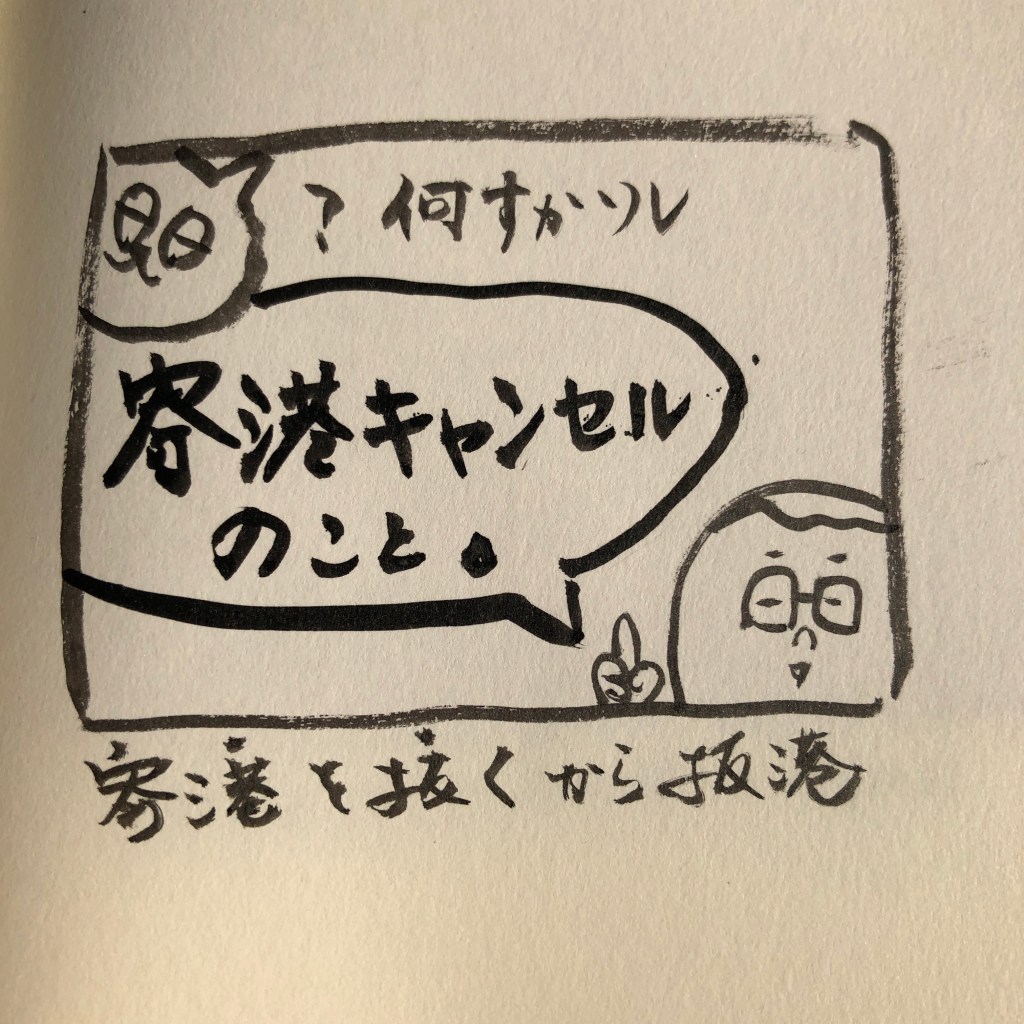 ？何すかソレ
寄港キャンセル
のこと。
寄港を抜くから抜港